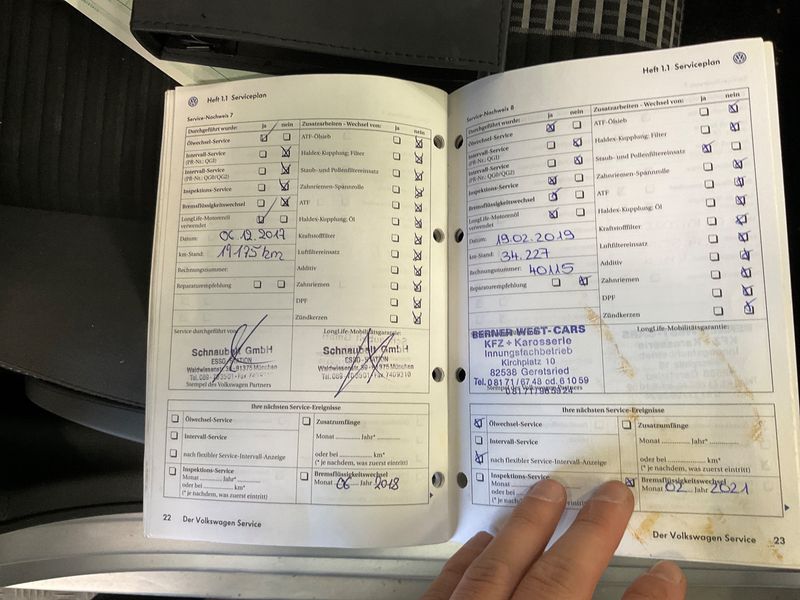 Heft 1.1 Serviceplan
Service-Nachweis 7
Durchgeführt wurde: ja nein
Ölwechsel-Service
Intervall-Service
(PR-Nr.: QG1)
Intervall-Service
(PR-Nr.: QG0/QG2)
Inspektions-Service
Bremsflüssigkeitswechsel
LongLife-Motorenöl
verwendet
Datum: 06.12.2017
km-Stand: 19175 km
Rechnungsnummer:
Reparaturempfehlung
Zusatzarbeiten - Wechsel von: ja nein
ATF-Ölsieb
Haldex-Kupplung: Filter
Staub- und Pollenfiltereinsatz
Zahnriemen-Spannrolle
ATF
Haldex-Kupplung: Öl
Kraftstofffilter
Luftfiltereinsatz
Additiv
Zahnriemen
DPF
Zündkerzen
Service durchgeführt von:
Schnaubelt GmbH
ESSO-STATION
81375 München
Stempel des Volkswagen Partners
LongLife-Mobilitätsgarantie:
Schnaubelt GmbH
ESSO-STATION
81375 München
Ihre nächsten Service-Ereignisse
Ölwechsel-Service
Intervall-Service
nach flexibler Service-Intervall-Anzeige
Inspektions-Service
Monat Jahr*
oder bei km*
(* je nachdem, was zuerst eintritt)
Zusatzumfänge
Monat Jahr*
oder bei km*
(* je nachdem, was zuerst eintritt)
Bremsflüssigkeitswechsel
Monat 06 Jahr 2018
22 Der Volkswagen Service
Heft 1.1 Serviceplan
Service-Nachweis 8
Durchgeführt wurde: ja nein
Ölwechsel-Service
Intervall-Service
(PR-Nr.: QG1)
Intervall-Service
(PR-Nr.: QG0/QG2)
Inspektions-Service
Bremsflüssigkeitswechsel
LongLife-Motorenöl
verwendet
Datum: 19.02.2019
km-Stand: 34.227
Rechnungsnummer: 40115
Reparaturempfehlung
Zusatzarbeiten - Wechsel von: ja nein
ATF-Ölsieb
Haldex-Kupplung: Filter
Staub- und Pollenfiltereinsatz
Zahnriemen-Spannrolle
ATF
Haldex-Kupplung: Öl
Kraftstofffilter
Luftfiltereinsatz
Additiv
Zahnriemen
DPF
Zündkerzen
BERNER WEST-CARS
KFZ + Karosserie
Innungsfachbetrieb
Kirchplatz 10
82538 Geretsried
Tel. 08171/6748 od. 61059
Stempel des Volkswagen Partners
LongLife-Mobilitätsgarantie:
Ihre nächsten Service-Ereignisse
Ölwechsel-Service
Intervall-Service
nach flexibler Service-Intervall-Anzeige
Inspektions-Service
Monat
oder bei
(* je nachdem, was zuerst eintritt)
Zusatzumfänge
Monat Jahr*
oder bei km*
(* je nachdem, was zuerst eintritt)
Bremsflüssigkeitswechsel
Monat 02 Jahr 2021
Der Volkswagen Service 23